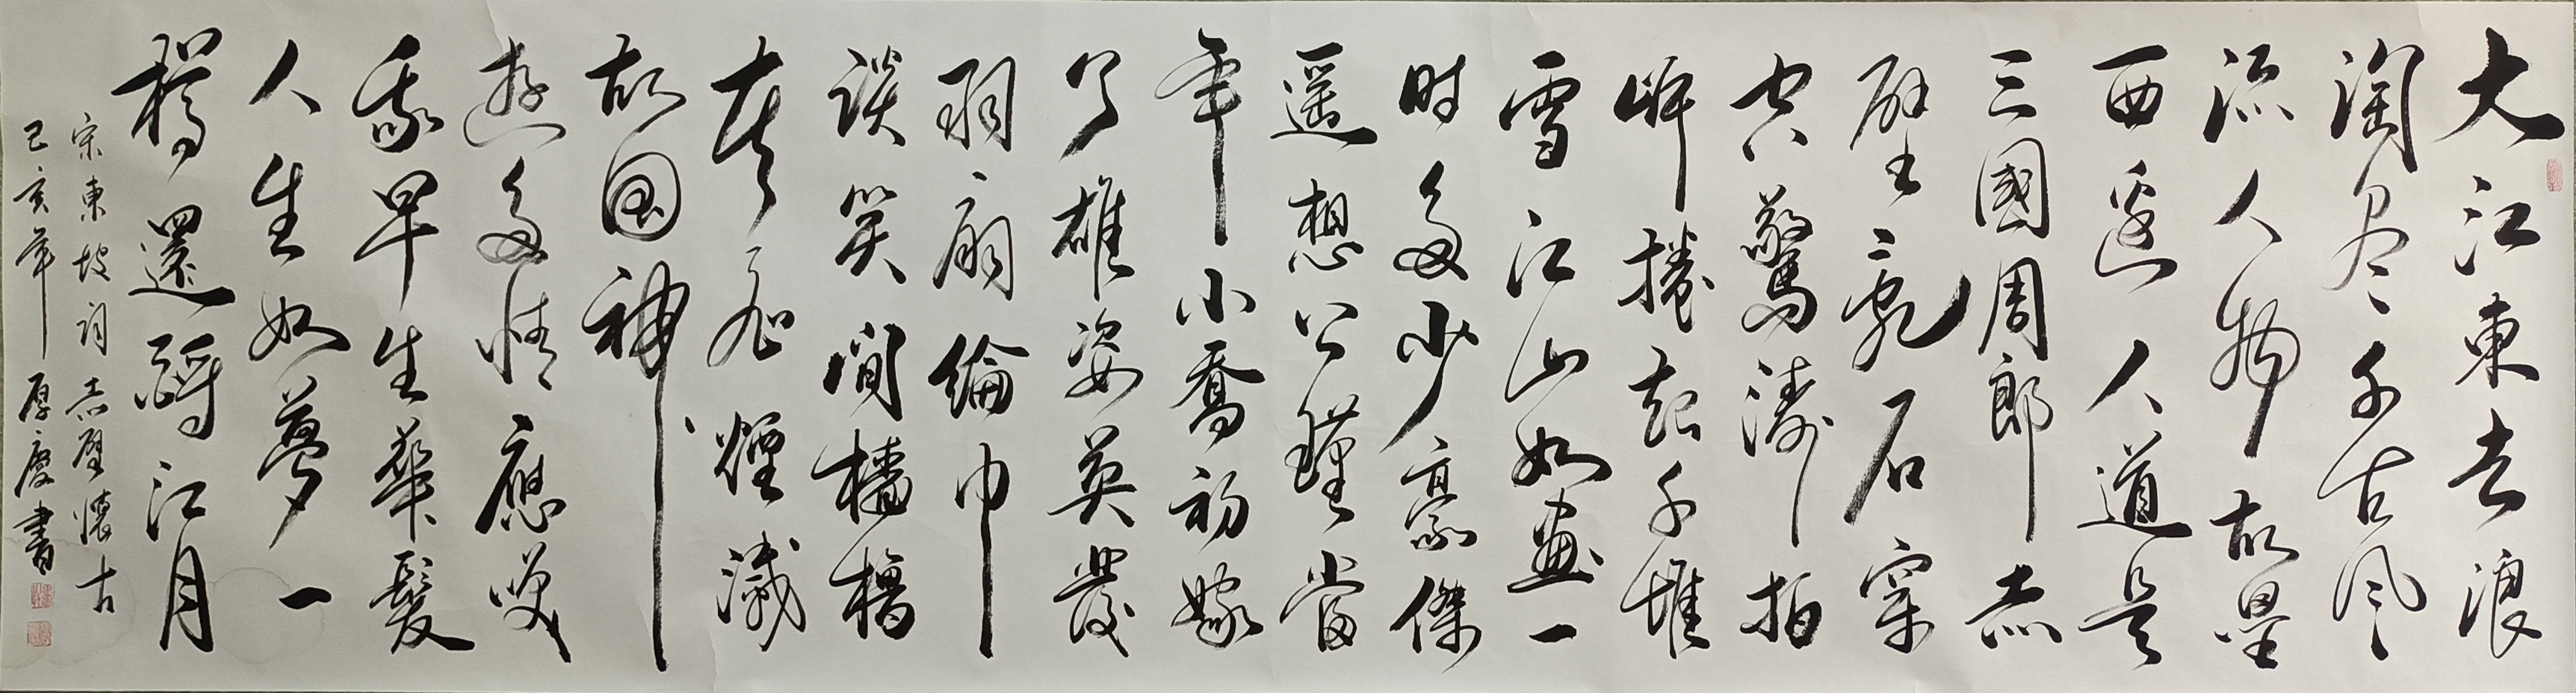 大江東去浪
淘尽千古风
流人物故壘
西邊人道是
三國周郎赤
壁亂石穿
空驚濤拍
岸捲起千堆
雪江山如畫一
时多少豪傑
遥想公瑾當
年小喬初嫁
了雄姿英發
羽扇綸巾
談笑間檣櫓
灰飛煙滅
故国神
遊多情應笑
我早生華髮
人生如夢一
樽還酹江月
宋東坡词赤壁懷古
己亥年厚慶書